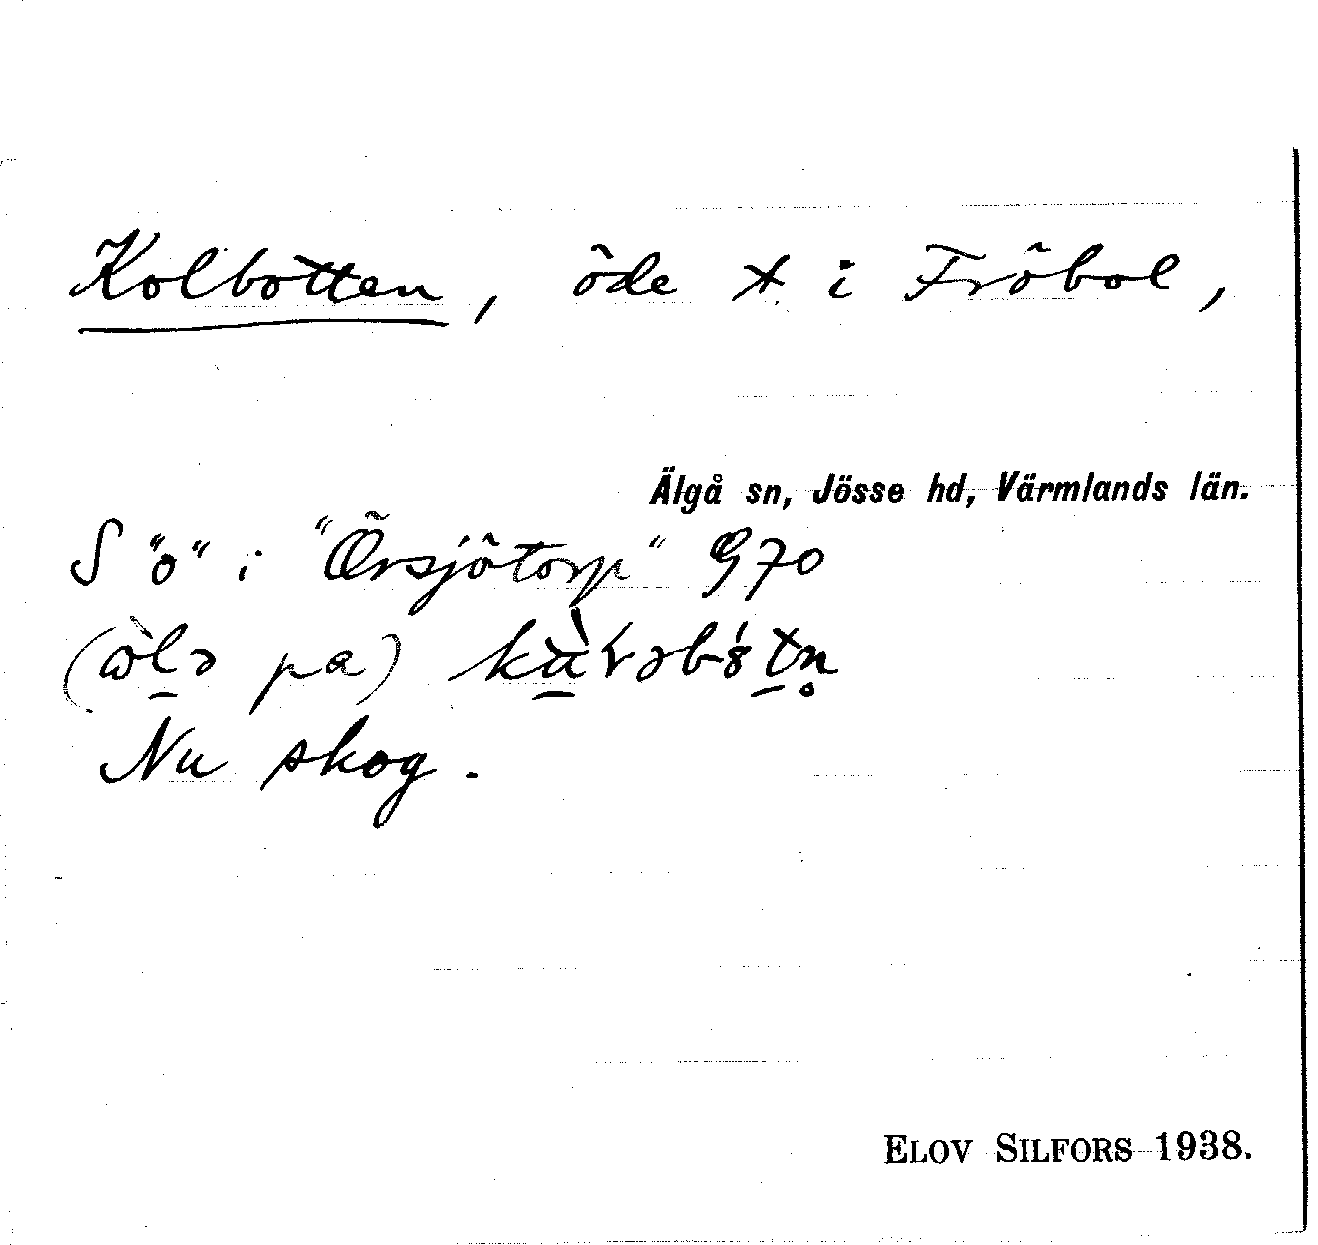 Kolbotten, öde t. i Fröbol,
Älgå sn, Jösse hd, Värmlands län.
S "o" i "Örsjötorp" G70
(pa)
Nu skog.
ELOV SILFORS 1938.